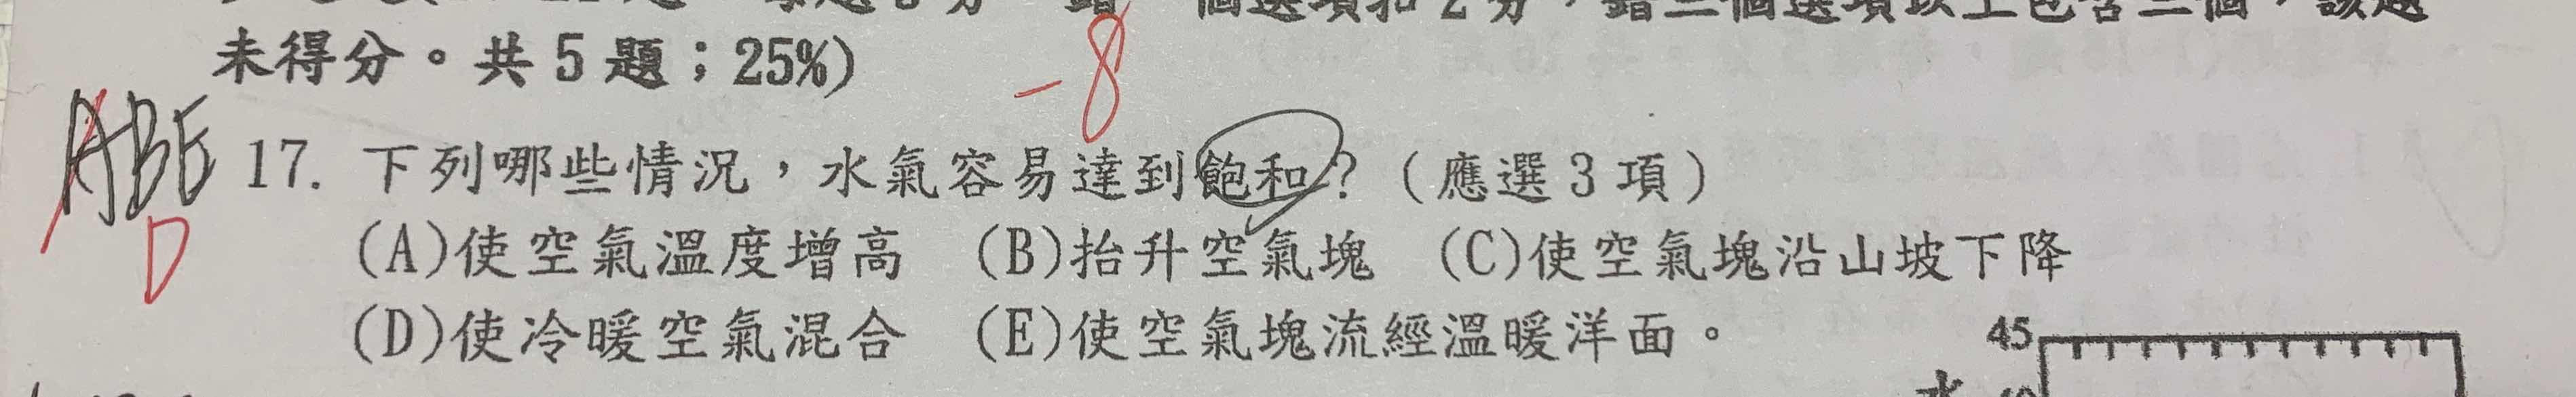 未得分。共 5 題；25%)
-8
ABE
D
17. 下列哪些情況，水氣容易達到飽和？（應選 3 項）
(A)使空氣溫度增高 (B)抬升空氣塊 (C)使空氣塊沿山坡下降
(D)使冷暖空氣混合 (E)使空氣塊流經溫暖洋面。
45
水